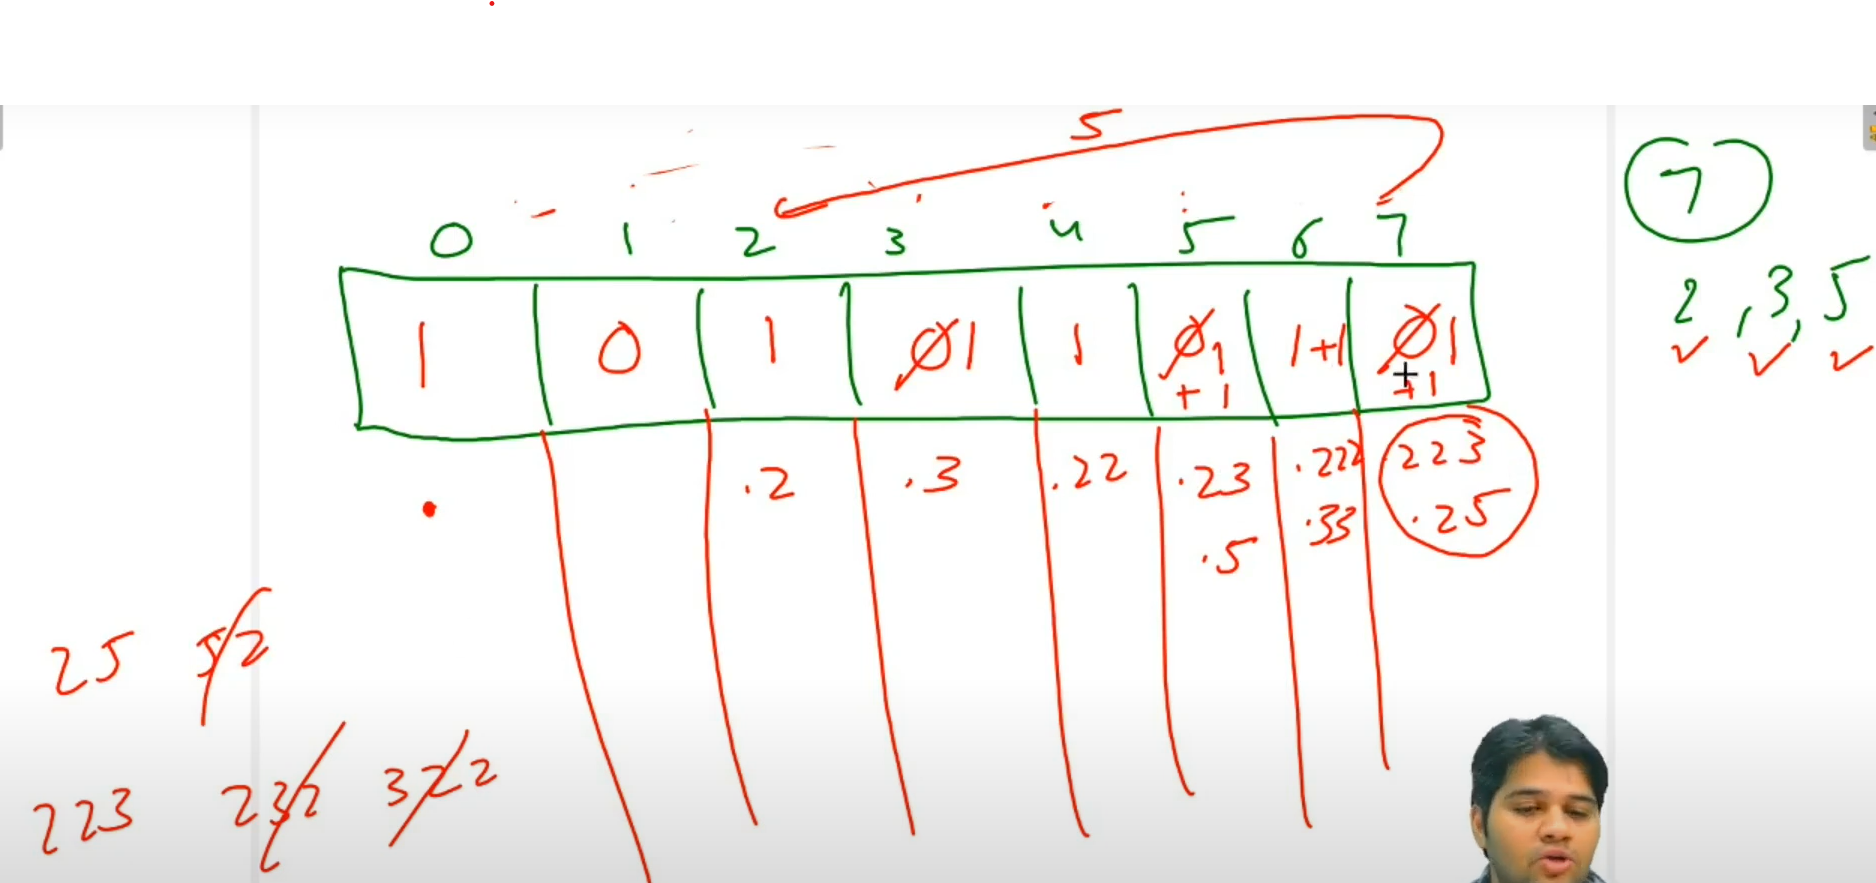 5
7
0 1 2 3 4 5 6 7
2, 3, 5
1 0 1 0 1 1 0 1 1+1 0 1
+1 +1
.2 .3 .22 .23 .222 223
.5 .33 .25
25 52
223 232 322